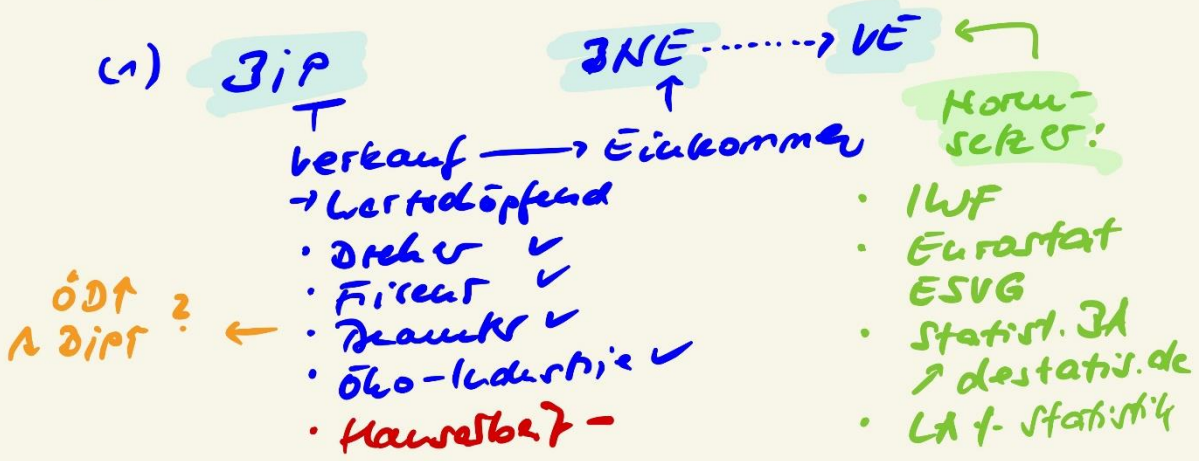 (1) BiP BNE ........> VE
Norm-
setzer:
Verkauf → Einkommen
→ Wertschöpfend
· Dreher ✓
· Friseur ✓
· Beamter ✓
· Öko-Industrie ✓
· Hausarbeit -
ÖD↑
BiP↑ ? ←
· IWF
· Eurostat
ESVG
· Statist. BA
↗ destatis.de
· LA f. Statistik